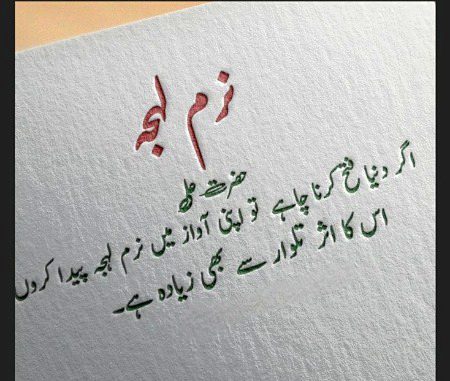 نرم لہجہ
حضرت علی
اگر دنیا فتح کرنا چاہے تو اپنی آواز میں نرم لہجہ پیدا کروں
اس کا اثر تلوار سے بھی زیادہ ہے۔